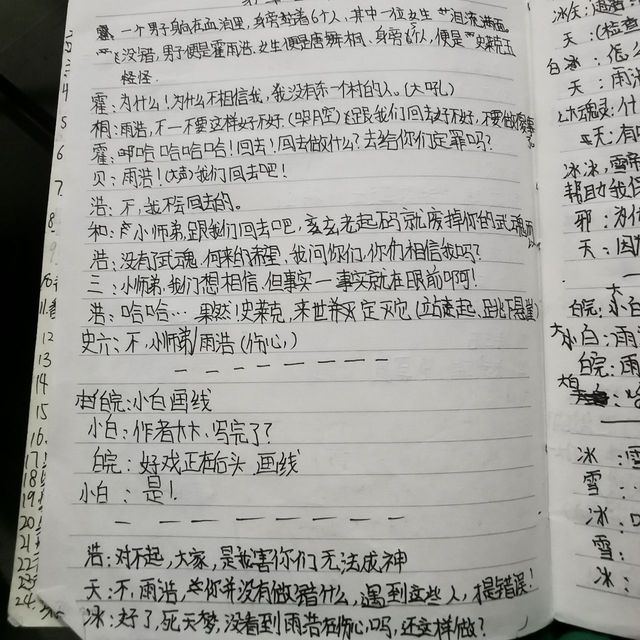 一个男子躺在血泊里,身旁站着6个人,其中一位女生泪流满面。
没错,男子便是霍雨浩.女生便是唐舞桐.身旁6人,便是史莱克五
怪怪.
霍:为什么!为什么不相信我,我没有东一个村的人。(大吼)
桐:雨浩,不一不要这样好不好.(哭腔)跟我们回去好不好,不要做傻事
霍:啊哈哈哈哈!回去!回去做什么?去给你们定罪吗?
贝:雨浩!(大声)我们回去吧!
浩:不,我不会回去的。
和:小师弟,跟我们回去吧,玄玄老起码就废掉你的武魂而
浩:没有了武魂,何来的希望,我问你们,你们相信我吗?
三:小师弟,我们想相信,但事实一事实就在眼前啊!
浩:哈哈…果然!史莱克,来世我定灭它(站起,跳下悬崖)
史六:不,小师弟/雨浩(伤心,)
皖:小白画线
小白:作者大大.写完了?
皖:好戏正在后头.画线
小白:是!
浩:对不起,大家,是我害你们无法成神
天:不,雨浩,你并没有做错什么,遇到这些人,才是错误!
冰:好了,死天梦,没看到雨浩在伤心吗,还这样做?
4
5
6
7
8
9
12
13
14
15
16
17
18
19
20
21
22
23
24
天:(检查
白冰:怎么
天:雨
天:有
冰冰,雪帝
帮助我
邪:为什
天:因
皖:小白
大小白:雨
皖:雨
冰:雪
雪:
冰:
雪:
冰: